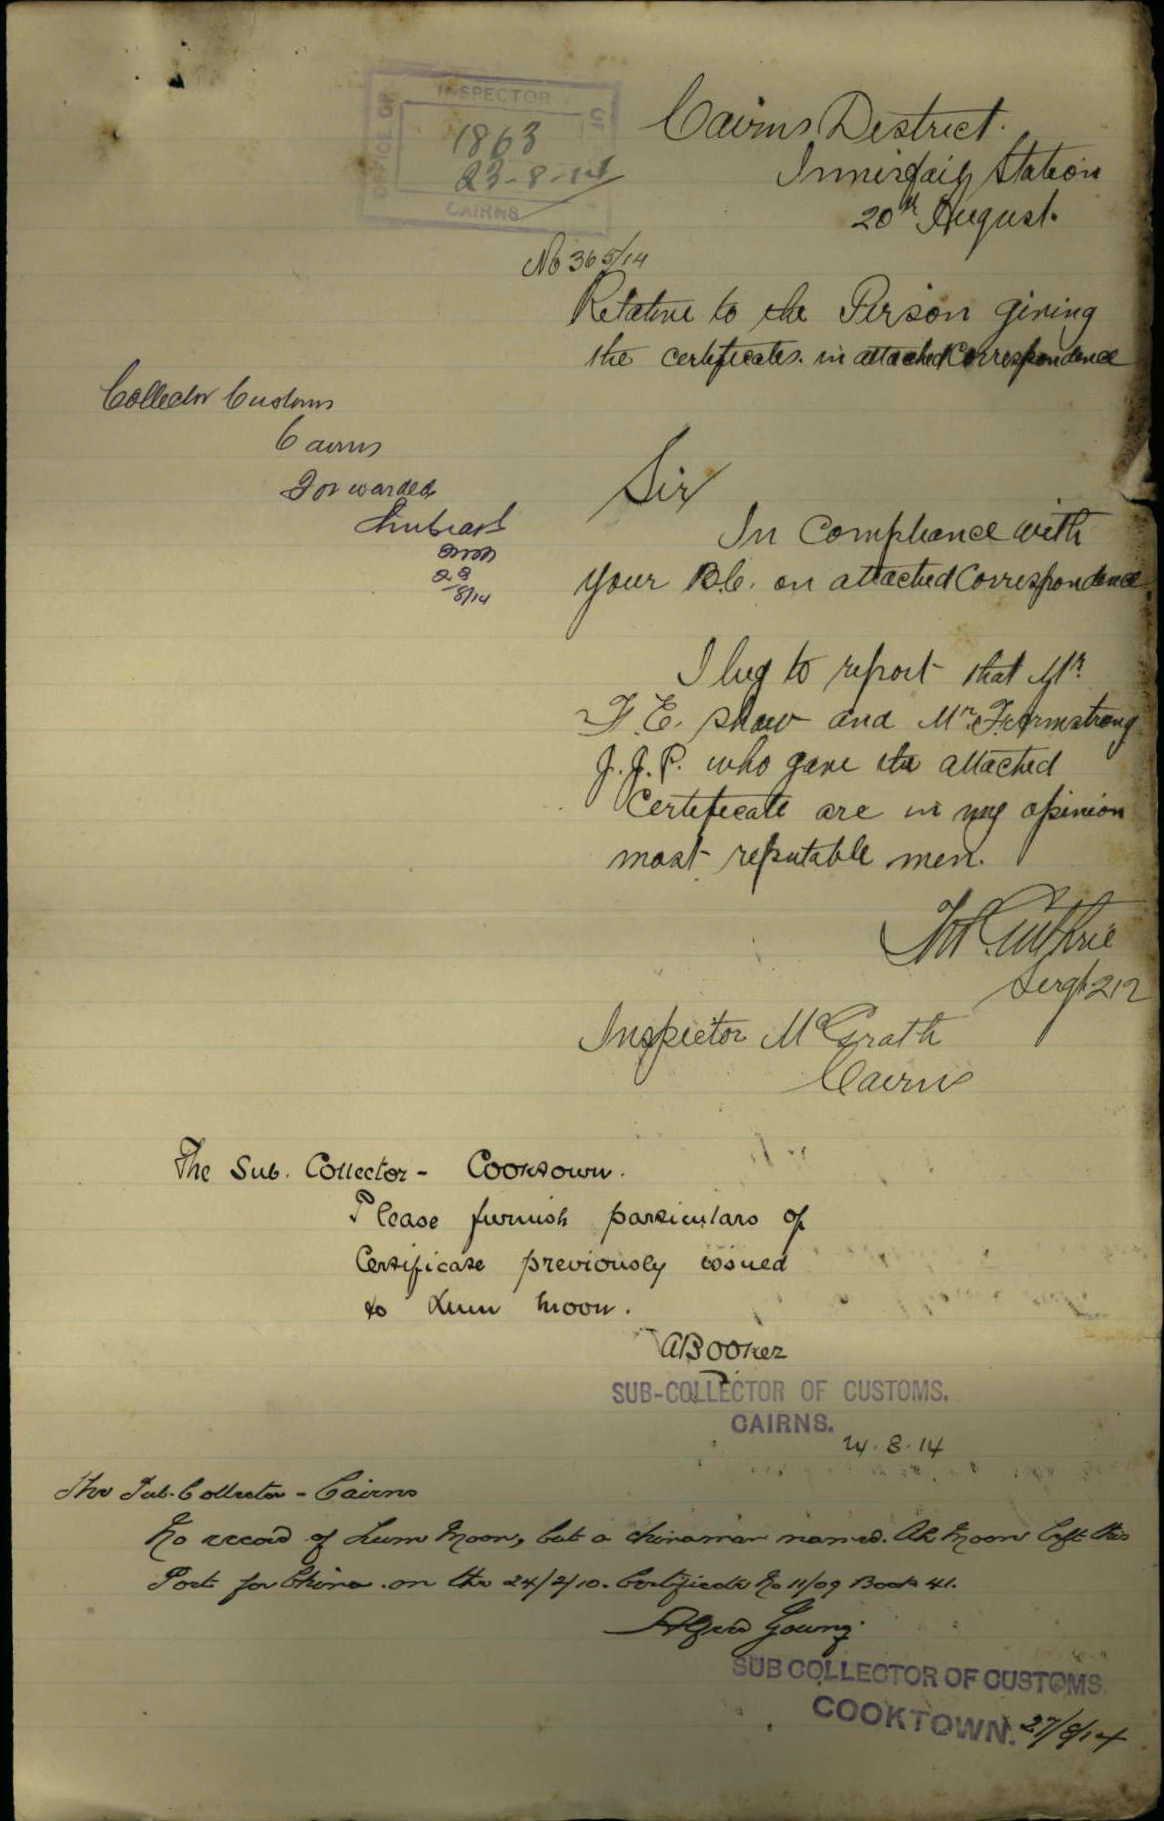 OFFICE OF
INSPECTOR
1863
23-8-14
CAIRNS
Cairns District.
Innisfail Station
20th August.
No 365/14
Relative to the Person giving
the certificates. in attached Correspondence
Collector Customs
Cairns
Forwarded
22
8/14
Sir
In Compliance with
your B.C. on attached Correspondence
I beg to report that Mr
F. E. Shaw and Mr. F. Armstrong
J.J.P. who gave the attached
Certificate are in my opinion
most reputable men.
Guthrie
Sergt 212
Inspector McGrath
Cairns
The Sub. Collector - Cooktown.
Please furnish particulars of
Certificate previously issued
to Lum Moon.
ABooker
SUB-COLLECTOR OF CUSTOMS.
CAIRNS.
24.8.14
The Sub. Collector - Cairns
No record of Lum Moon, but a chinaman named. Ah Moon left this
Port for China. on the 24/2/10. Certificate No 11/09 Book 41.
Alfred Young.
SUB COLLECTOR OF CUSTOMS
COOKTOWN. 27/8/14